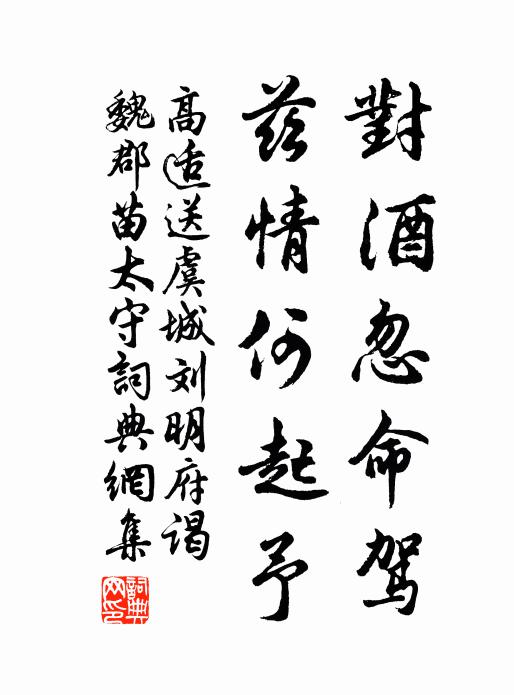 對酒忽命駕
茲情何起予
高适送虞城刘明府谒
魏郡苗太守詞典網集
詞典网印